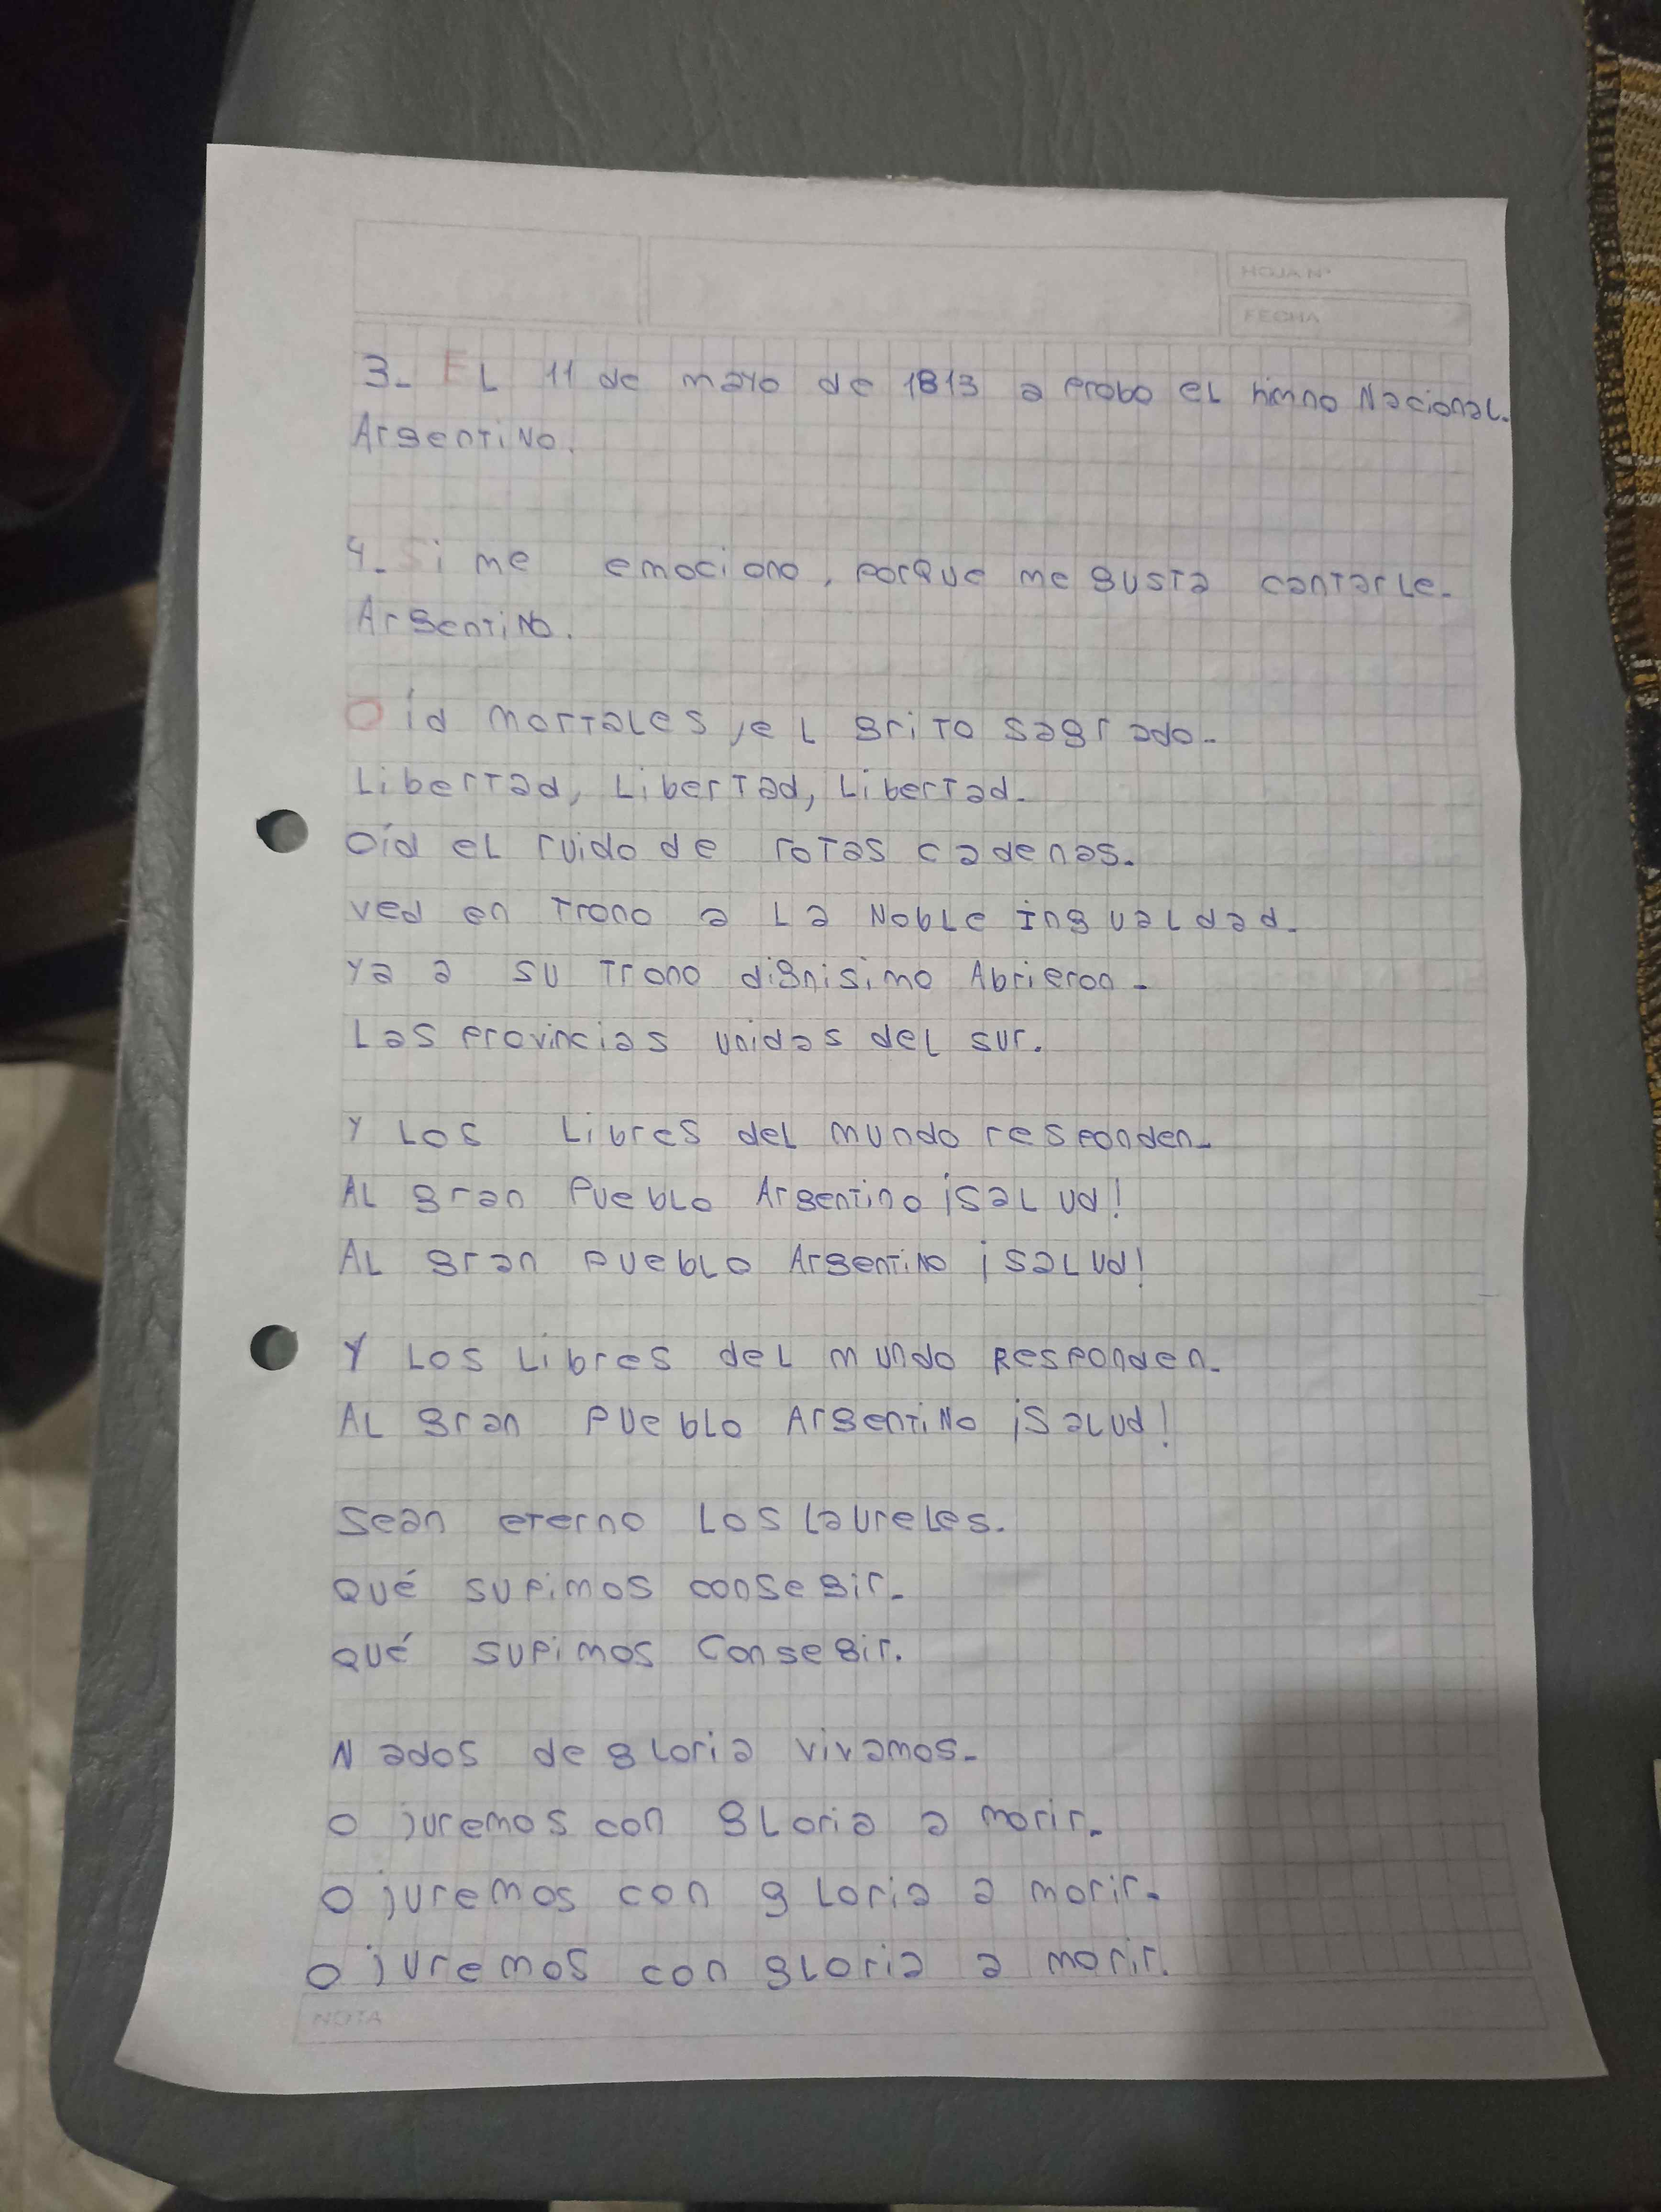 HOJA N°
FECHA
3- EL 11 de mayo de 1813 a probo el himno Nacional.
Argentino.
4- Si me emociono, porque me gusta cantarle.
Argentino.
Oíd mortales, el grito sagrado.
Libertad, Libertad, Libertad.
Oíd el ruido de rotas cadenas.
ved en trono a La Noble ingualdad.
ya a su trono dignisimo Abrieron.
Las provincias unidas del sur.
Y Los Libres del mundo responden.
AL gran Pueblo Argentino ¡Salud!
AL gran pueblo Argentino ¡salud!
Y Los Libres del mundo Responden.
AL gran pueblo Argentino ¡Salud!
Sean eterno Los laureles.
Qué supimos consegir.
Qué supimos Consegir.
Nados de gloria vivamos.
O juremos con gloria a morir.
O juremos con gloria a morir.
O juremos con gloria a morir.
NOTA